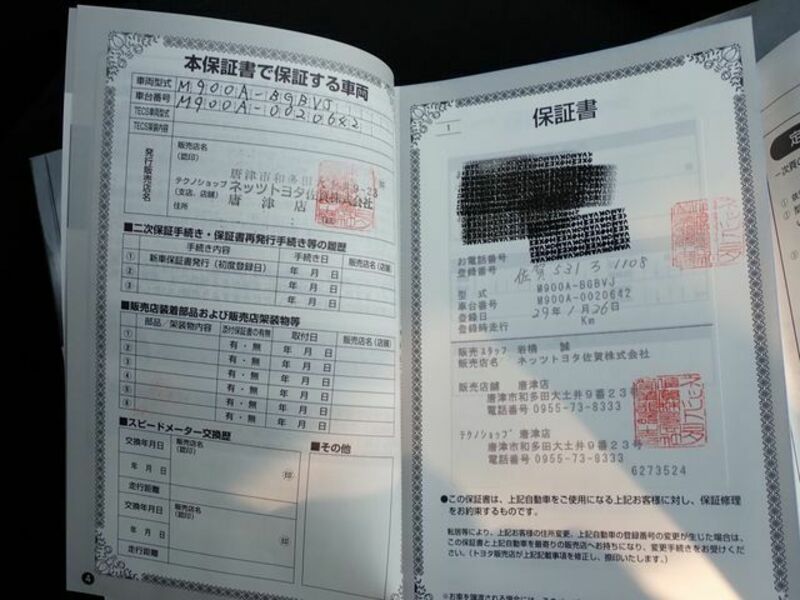 本保証書で保証する車両
車両型式 M900A-BGBVJ
車台番号 M900A-0020642
TECS車両型式
TECS架装内容
発行販売店名
販売店名
(認印)
唐津市和多田大 9-23
テクノショップ ネッツトヨタ佐賀 会社
(支店、店舗)
唐津店
住所
■二次保証手続き・保証書再発行手続き等の履歴
手続き内容 手続き日 販売店名(店舗)
① 新車保証書発行(初度登録日) 年 月 日
② 年 月 日
③ 年 月 日
■販売店装着部品および販売店架装物等
部品/架装物内容 添付保証書の有無 取付日 販売店名(店舗)
① 有・無 年 月 日
② 有・無 年 月 日
③ 有・無 年 月 日
④ 有・無 年 月 日
⑤ 有・無 年 月 日
⑥ 有・無 年 月 日
■スピードメーター交換歴
交換年月日 販売店名
(認印)
年 月 日 印
走行距離
交換年月日 販売店名
(認印)
年 月 日 印
走行距離
■その他
4
保証書
1
お電話番号
登録番号 佐賀 531 ろ 1108
型式 M900A-BGBVJ
車台番号 M900A-0020642
登録日 29年 1月26日
登録時走行 Km
販売スタッフ 岩橋 誠
販売店名 ネッツトヨタ佐賀株式会社
販売店舗 唐津店
唐津市和多田大土井9番23号
電話番号 0955-73-8333
テクノショップ 唐津店
唐津市和多田大土井9番23号
電話番号 0955-73-8333
6273524
●この保証書は、上記自動車をご使用になる上記お客様に対し、保証修理
をお約束するものです。
転居等により、上記お客様の住所変更、上記自動車の登録番号の変更が生じた場合は、
この保証書と上記自動車を最寄りの販売店へお持ちになり、変更手続きをお受けくだ
さい。(トヨタ販売店が上記記載事項を修正し、捺印いたします。)